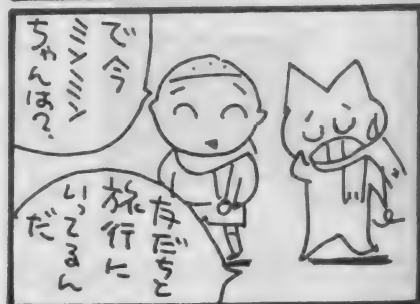 で今
ミンミン
ちゃんは？
友だちと
旅行に
いってるん
だ